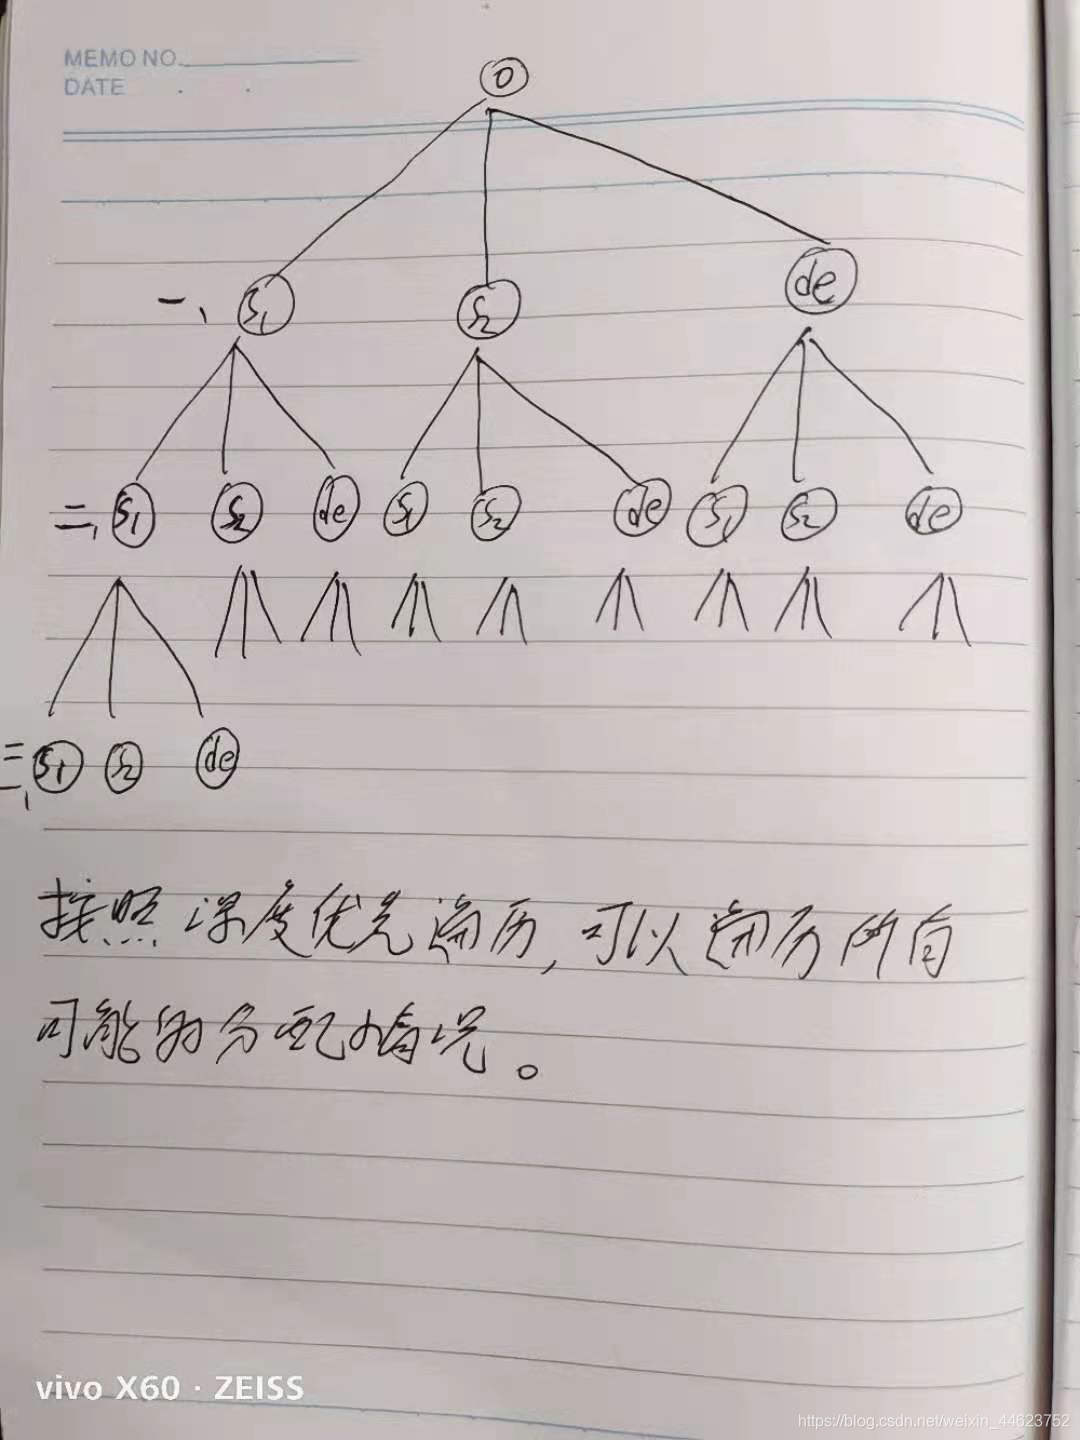 MEMO NO.
DATE . .
0
一、 S1 S2 de
二、 S1 S2 de S1 S2 de S1 S2 de
三、 S1 S2 de
按照深度优先遍历,可以遍历所有
可能的分配情况。
vivo X60 · ZEISS
https://blog.csdn.net/weixin_44623752